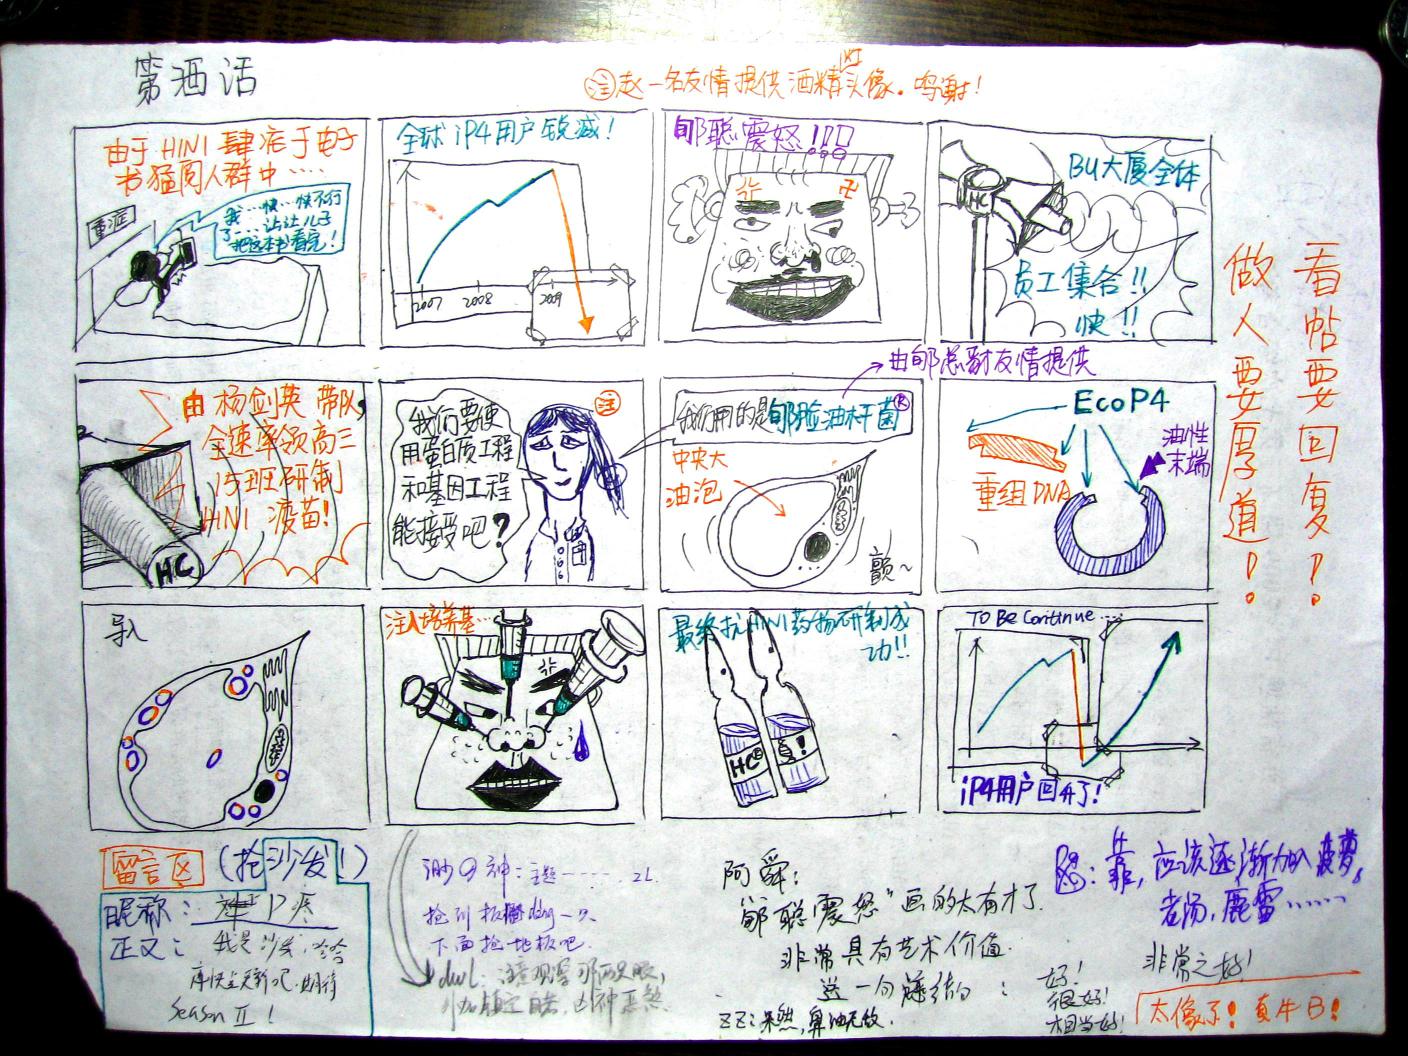 第酒话
注 赵一名友情提供酒精头像。鸣谢!
由于H1N1肆
于电子
书猛阅人群中……
重症
我…快…快不行
了……让我儿子
把这本书看完!
全球iP4用户锐减!
2007
2008
2009
郇聪震怒!!!
卐
HC
BU大厦全体
员工集合!!
快!!
看帖要回复!
做人要厚道!
由杨剑英带队,
全速率领高三
15班研制
H1N1疫苗!
HC
我们要使
用蛋白质工程
和基因工程
能接受吧?
注
由郇总裁友情提供
我们用的是郇脸油杆菌®
中央大
油泡
颤~
EcoP4
重组DNA
油性
末端
导入
注入培养基…
最终抗H1N1药物研制成
功!!
HC®
!
TO Be Continue…
iP4用户回升了!
留言区 (抢沙发!)
昵称:
正文:我是沙发,哈哈
再快点更新吧,期待
Season II !
神:主题------2L
下面抢地板吧.
dwL:
阿舜:
"郇聪震怒"画的太有才了.
非常具有艺术价值.
送一句
:
好!
很好!
相当好!
ZZ:果然,鼻油无敌.
怒:靠,应该逐渐加入菠萝,
老汤,鹿雷……
非常之好!
太像了!真牛B!